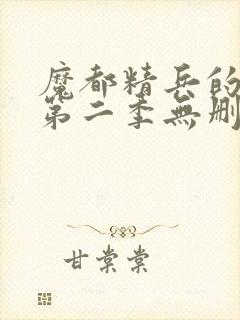 魔都精兵的
第二季無刪
甘棠棠